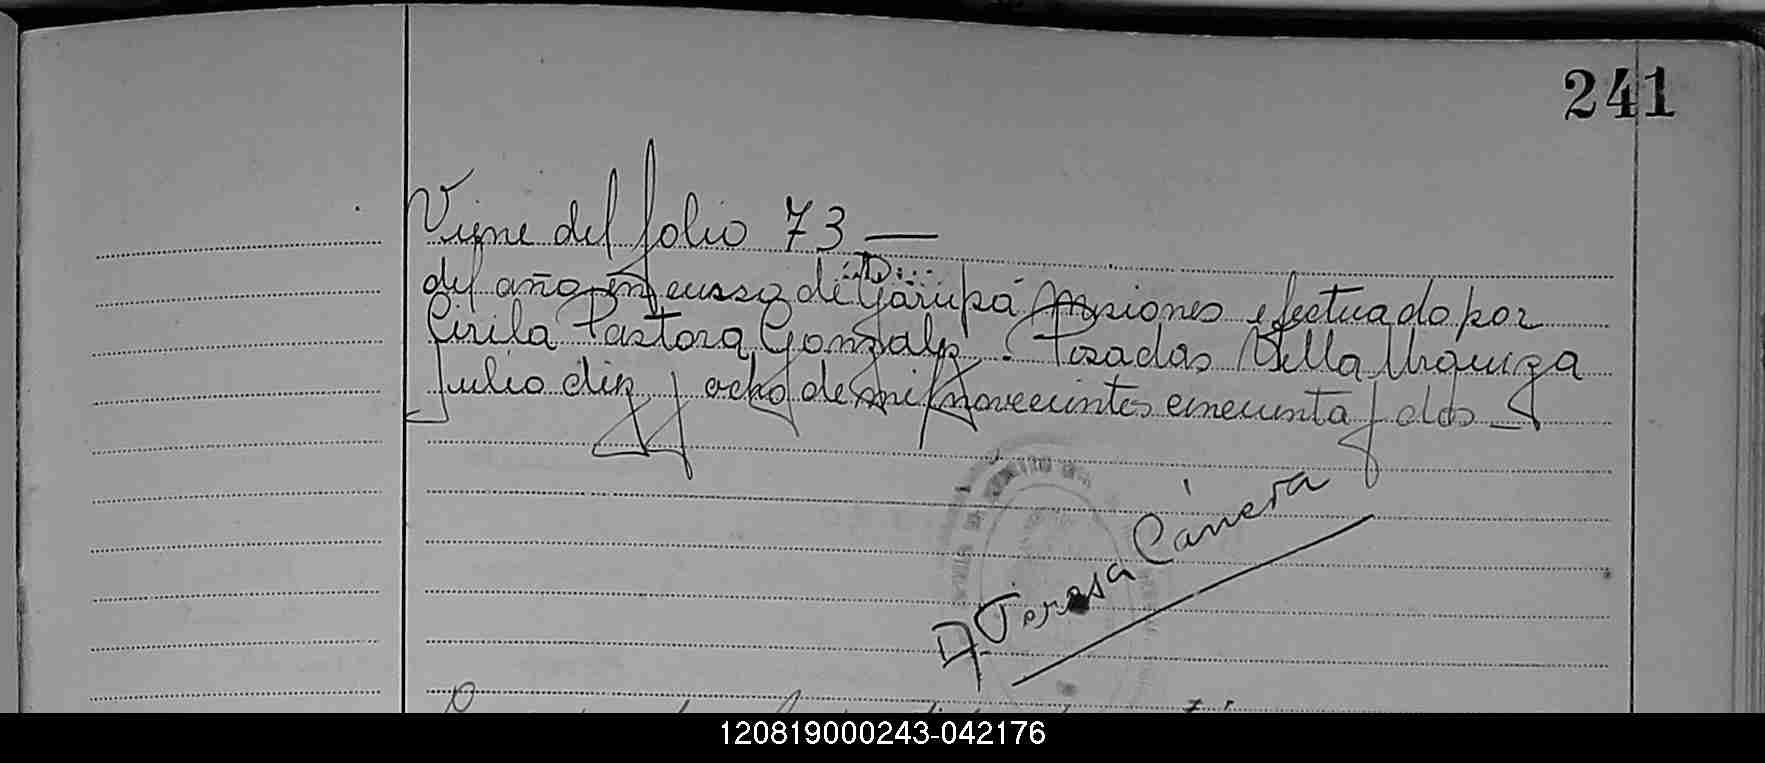 241
Viene del folio 73 —
del año en curso de Garupá Misiones efectuado por
Cirila Pastora Gonzalez. Posadas Villa Urquiza
Julio diez y ocho de mil novecientos cincuenta y dos —
Teresa Cámera
120819000243-042176